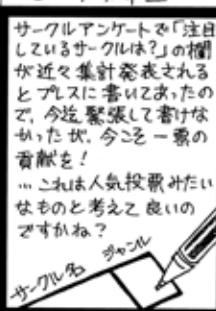 サークルアンケートで「注目
しているサークルは?」の欄
が近々集計発表される
とプレスに書いてあったの
で、今迄緊張して書けな
かったが、今こそ一票の
貢献を!
…これは人気投票みたい
なものと考えて良いの
ですかね?
サークル名
ジャンル